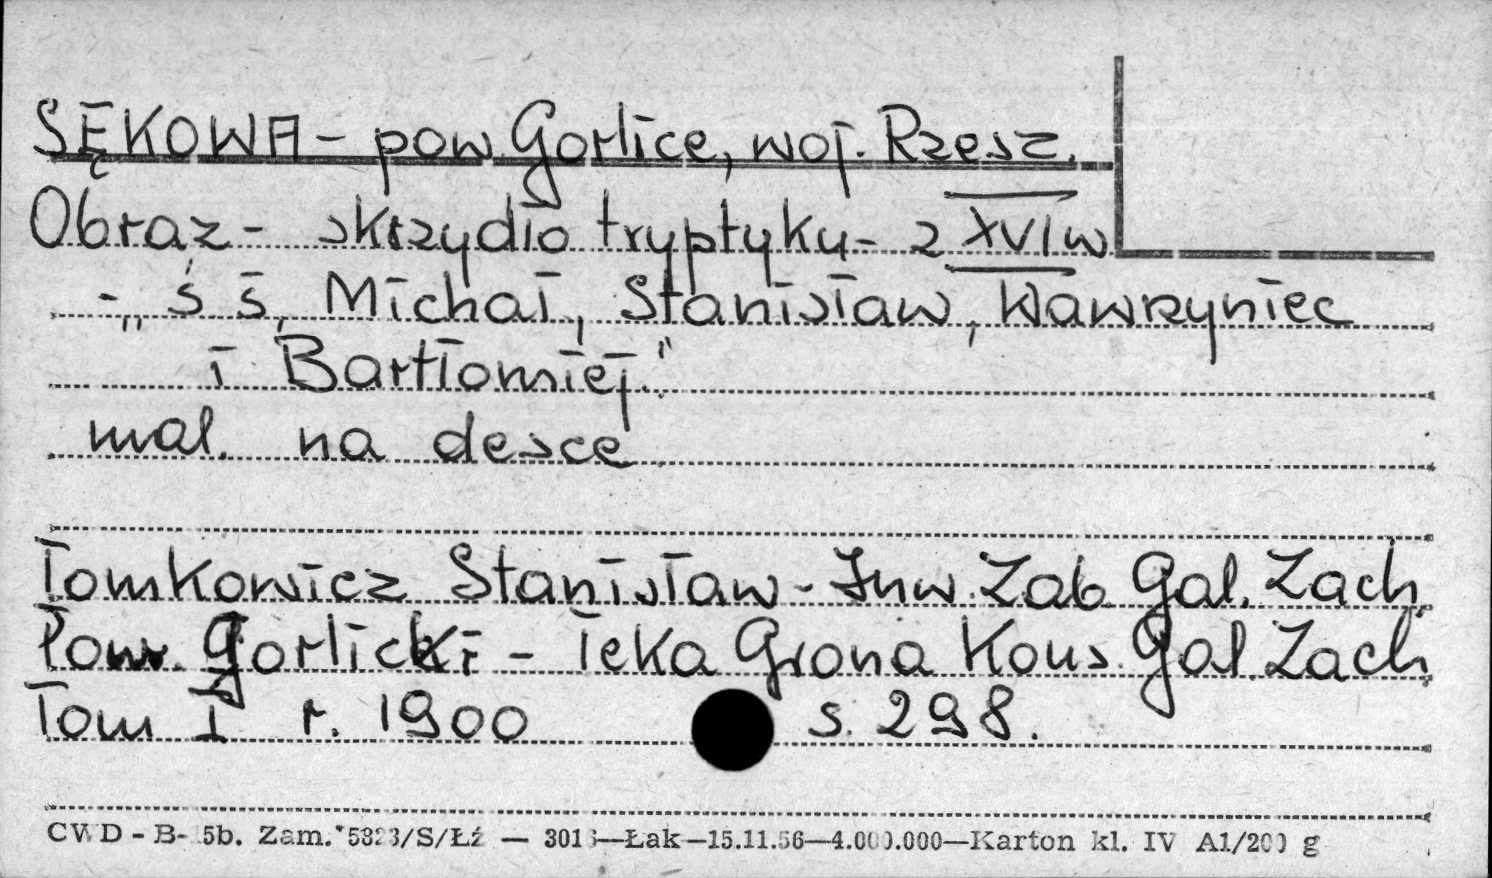 SĘKOWA - pow Gorlice, woj. Rzesz.
Obraz - skrzydło tryptyku - z XVI w
- „ś ś, Michał, Stanisław, Wawrzyniec
i Bartłomiej."
mal. na desce
Tomkowicz Stanisław - Inw. Zab. Gal. Zach.
Pow. Gorlicki - Teka Grona Kons. Gal. Zach.
Tom I r. 1900 s. 298.
— Łak—15.11.56—4.000.000—Karton kl. IV A1/200 g